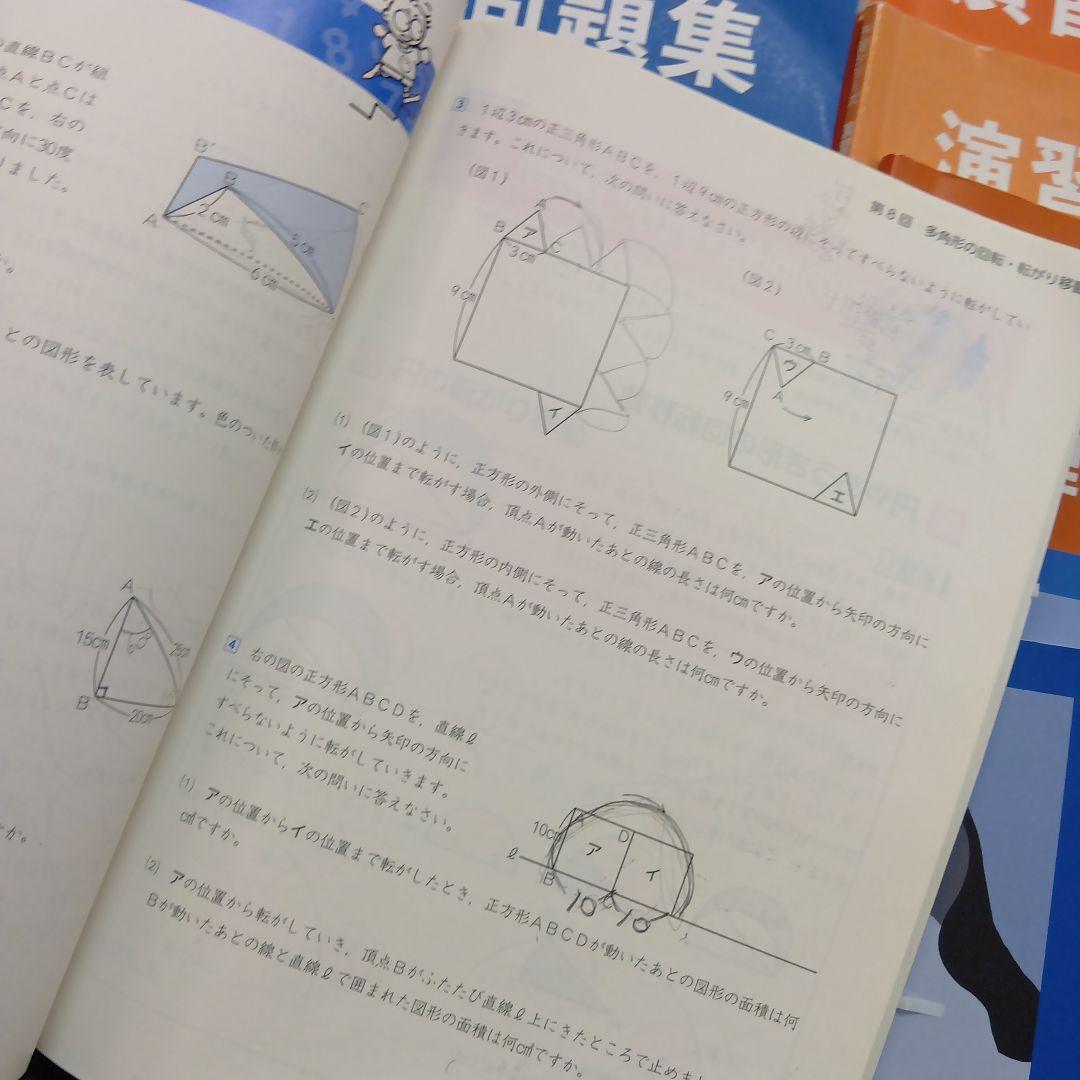 問題集
演習
演習
の直線BCが紙
点Aと点Cは
Cを、右の
向に30度
りました。
B'
B
A
C
2cm
5cm
6cm
との図形を表しています。色のついた
A
15cm
25cm
B
20cm
第8回 多角形の回転・転がり移動
3 1辺3cmの正三角形ABCを、1辺9cmの正方形の辺にそってすべらないように転がしてい
きます。これについて、次の問いに答えなさい。
(図1)
A
B
ア
C
3cm
9cm
イ
(図2)
C
3cm
B
ウ
A
9cm
エ
(1) (図1)のように、正方形の外側にそって、正三角形ABCを、アの位置から矢印の方向に
イの位置まで転がす場合、頂点Aが動いたあとの線の長さは何cmですか。
(2) (図2)のように、正方形の内側にそって、正三角形ABCを、ウの位置から矢印の方向に
エの位置まで転がす場合、頂点Aが動いたあとの線の長さは何cmですか。
4 右の図の正方形ABCDを、直線ℓ
にそって、アの位置から矢印の方向に
すべらないように転がしていきます。
これについて、次の問いに答えなさい。
10cm
D
ア
イ
ℓ
B
C
10
10
(1) アの位置からイの位置まで転がしたとき、正方形ABCDが動いたあとの図形の面積は何
cm²ですか。
(2) アの位置から転がしていき、頂点Bがふたたび直線ℓ上にきたところで止めま
Bが動いたあとの線と直線ℓで囲まれた図形の面積は何cm²ですか。